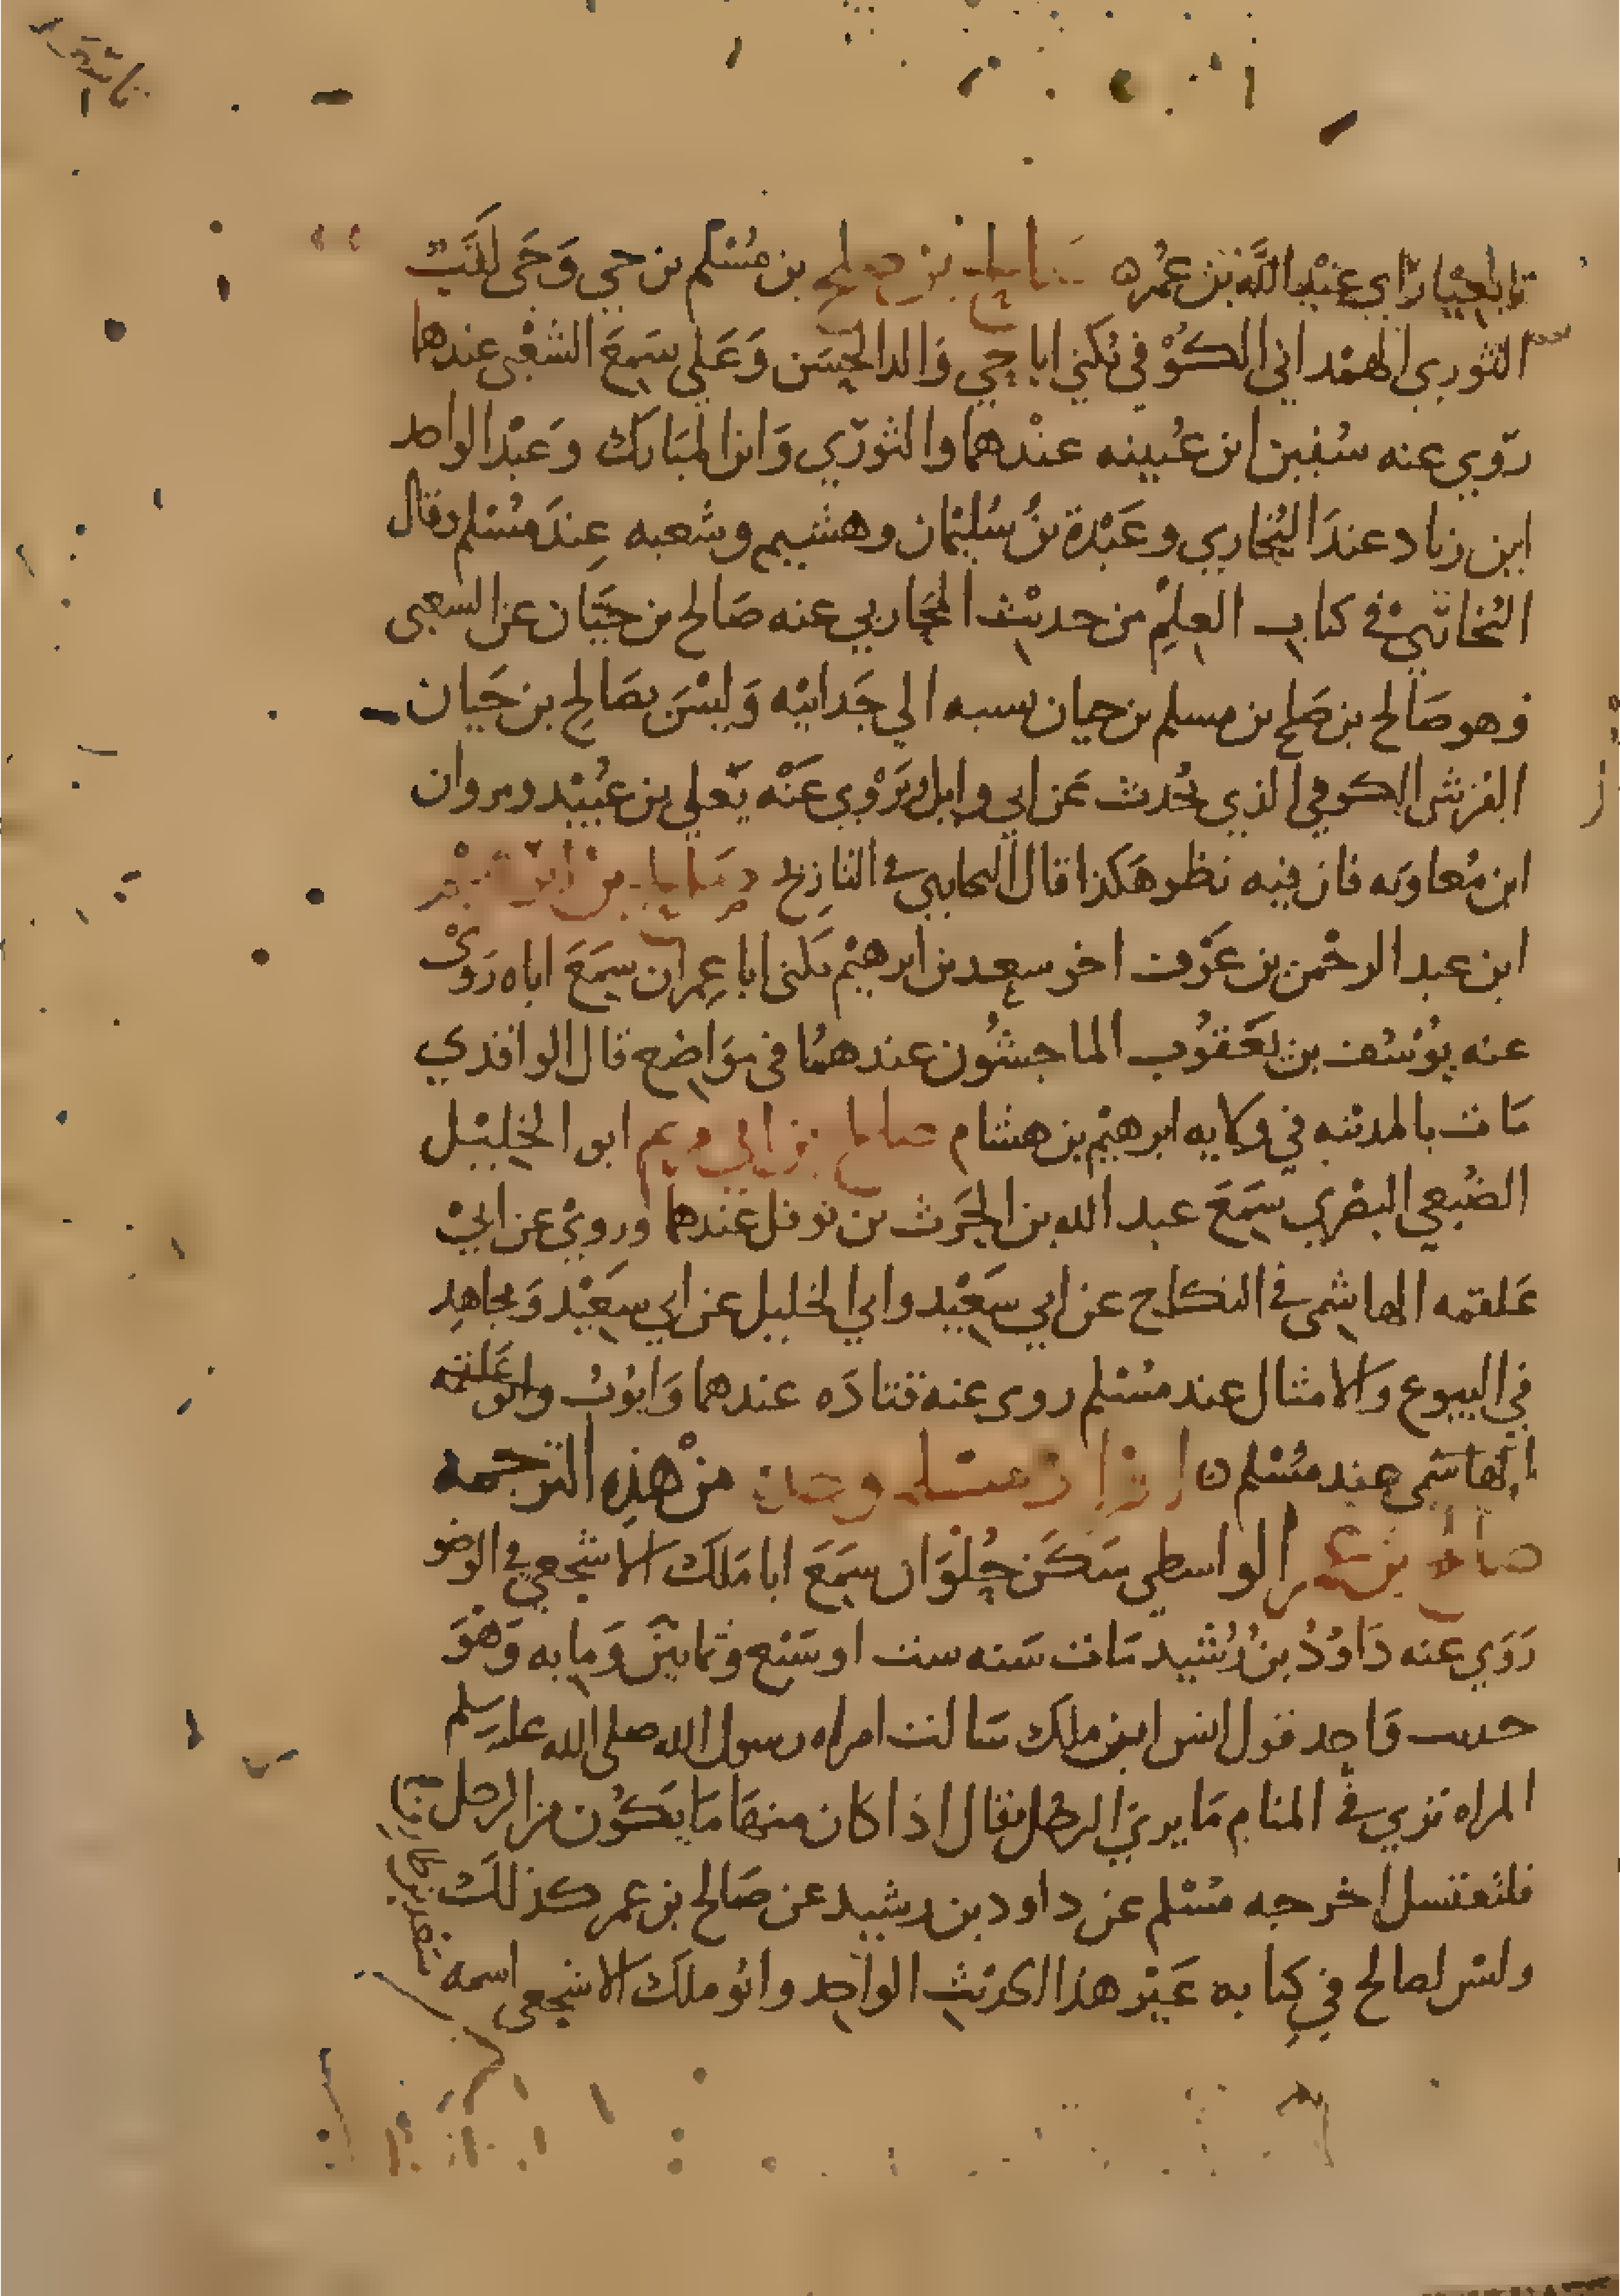 عبد الله بن عمر ه صالح بن صلح بن مسلم بن حي وحي لقب
الثوري الهمداني الكوفي يكني ابا حي والد الحسن وعلي سمع الشعبي عندهما
روي عنه سفين ابن عيينه عندهما والثوري وابن المبارك وعبد الواحد
ابن زياد عند البخاري وعبدة بن سليمان وهشيم وشعبه عند مسلم وقال
البخاري في كتاب العلم من حديث المحاربي عنه صالح بن حيان عن الشعبي
وهو صالح بن صلح بن مسلم بن حيان نسبه الي جد ابيه وليس بصالح بن حيان
القرشي الكوفي الذي يحدث عن ابي وايل ويروي عنه يعلي بن عبيد ومروان
ابن معاويه فان فيه نظر هكذا قال البخاري في التاريخ صالح بن ابرهيم
ابن عبد الرحمن بن عوف اخو سعد بن ابرهيم يكني ابا عمران سمع اباه روي
عنه يوسف بن يعقوب الماجشون عندهما في مواضع قال الواقدي
مات بالمدينه في ولايه ابرهيم بن هشام صالح بن ابي مريم ابو الخليل
الضبعي البصري سمع عبد الله بن الحرث بن نوفل عندهما وروي عن ابي
علقمه الهاشمي في النكاح عن ابي سعيد وابي الخليل عن ابي سعيد ومجاهد
في البيوع والامثال عند مسلم روي عنه قتاده عندهما وايوب وابو علقمه
الهاشمي عند مسلم ه افراد مسلم وحده من هذه الترجمه
صالح بن عمر الواسطي سكن حلوان سمع ابا ملك الاشجعي في الوضو
روي عنه داود بن رشيد مات سنه ست او سبع وثمانين ومايه وهو
حديث واحد قول انس ابن ملك سالت امراه رسول الله صلي الله عليه وسلم
المراه تري في المنام ما يري الرجل فقال اذا كان منها ما يكون من الرجل
فلتغتسل اخرجه مسلم عن داود بن رشيد عن صالح بن عمر كذلك
وليس لصالح في كتابه غير هذا الحديث الواحد وابو ملك الاشجعي اسمه
سعد بن طارق